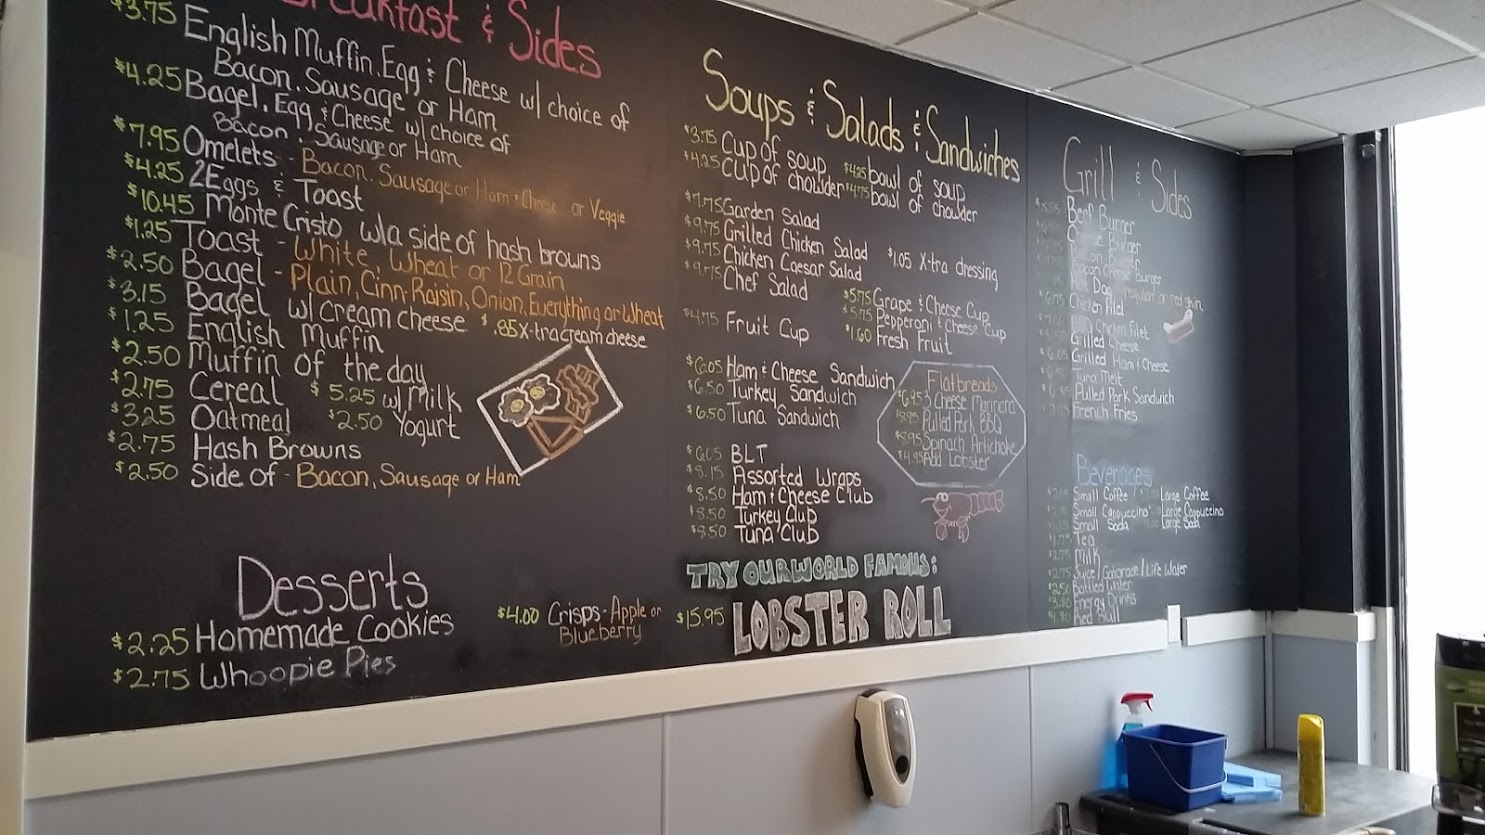 Breakfast & Sides
$3.75 English Muffin, Egg & Cheese w/ choice of
Bacon, Sausage or Ham
$4.25 Bagel, Egg & Cheese w/ choice of
Bacon, Sausage or Ham
$7.95 Omelets - Bacon, Sausage or Ham & Cheese or Veggie
$4.25 2 Eggs & Toast
$10.45 Monte Cristo w/a side of hash browns
$1.25 Toast - White, Wheat or 12 Grain
$2.50 Bagel - Plain, Cinn-Raisin, Onion, Everything or Wheat
$3.15 Bagel w/ cream cheese $.85 x-tra cream cheese
$1.25 English Muffin
$2.50 Muffin of the day
$2.75 Cereal $5.25 w/ Milk
$3.25 Oatmeal $2.50 Yogurt
$2.75 Hash Browns
$2.50 Side of - Bacon, Sausage or Ham
Desserts
$2.25 Homemade Cookies
$2.75 Whoopie Pies
$4.00 Crisps - Apple or
Blueberry
Soups & Salads & Sandwiches
$3.75 Cup of soup $4.25 bowl of soup
$4.25 Cup of chowder $4.75 bowl of chowder
$7.75 Garden Salad
$9.75 Grilled Chicken Salad
$9.75 Chicken Caesar Salad
$9.75 Chef Salad
$1.05 X-tra dressing
$4.75 Fruit Cup
$5.75 Grape & Cheese Cup
$5.75 Pepperoni & Cheese Cup
$1.60 Fresh Fruit
$6.05 Ham & Cheese Sandwich
$6.50 Turkey Sandwich
$6.50 Tuna Sandwich
$6.05 BLT
$8.15 Assorted Wraps
$8.50 Ham & Cheese Club
$8.50 Turkey Club
$8.50 Tuna Club
Flatbreads
$6.95 3 Cheese Marinara
$8.95 Pulled Pork BBQ
$8.95 Spinach Artichoke
$4.95 Add Lobster
TRY OUR WORLD FAMOUS:
$15.95 LOBSTER ROLL
Grill & Sides
Beef Burger
Cheese Burger
Bacon Burger
Bacon Cheese Burger
Hot Dog regular or red skin
Chicken Filet
Chicken Filet
Grilled Cheese
Grilled Ham & Cheese
Tuna Melt
Pulled Pork Sandwich
French Fries
Beverages
Small Coffee Large Coffee
Small Cappuccino Large Cappuccino
Small Soda Large Soda
Tea
Milk
Juice/Gatorade/Life Water
Bottled Water
Energy Drinks
Red Bull